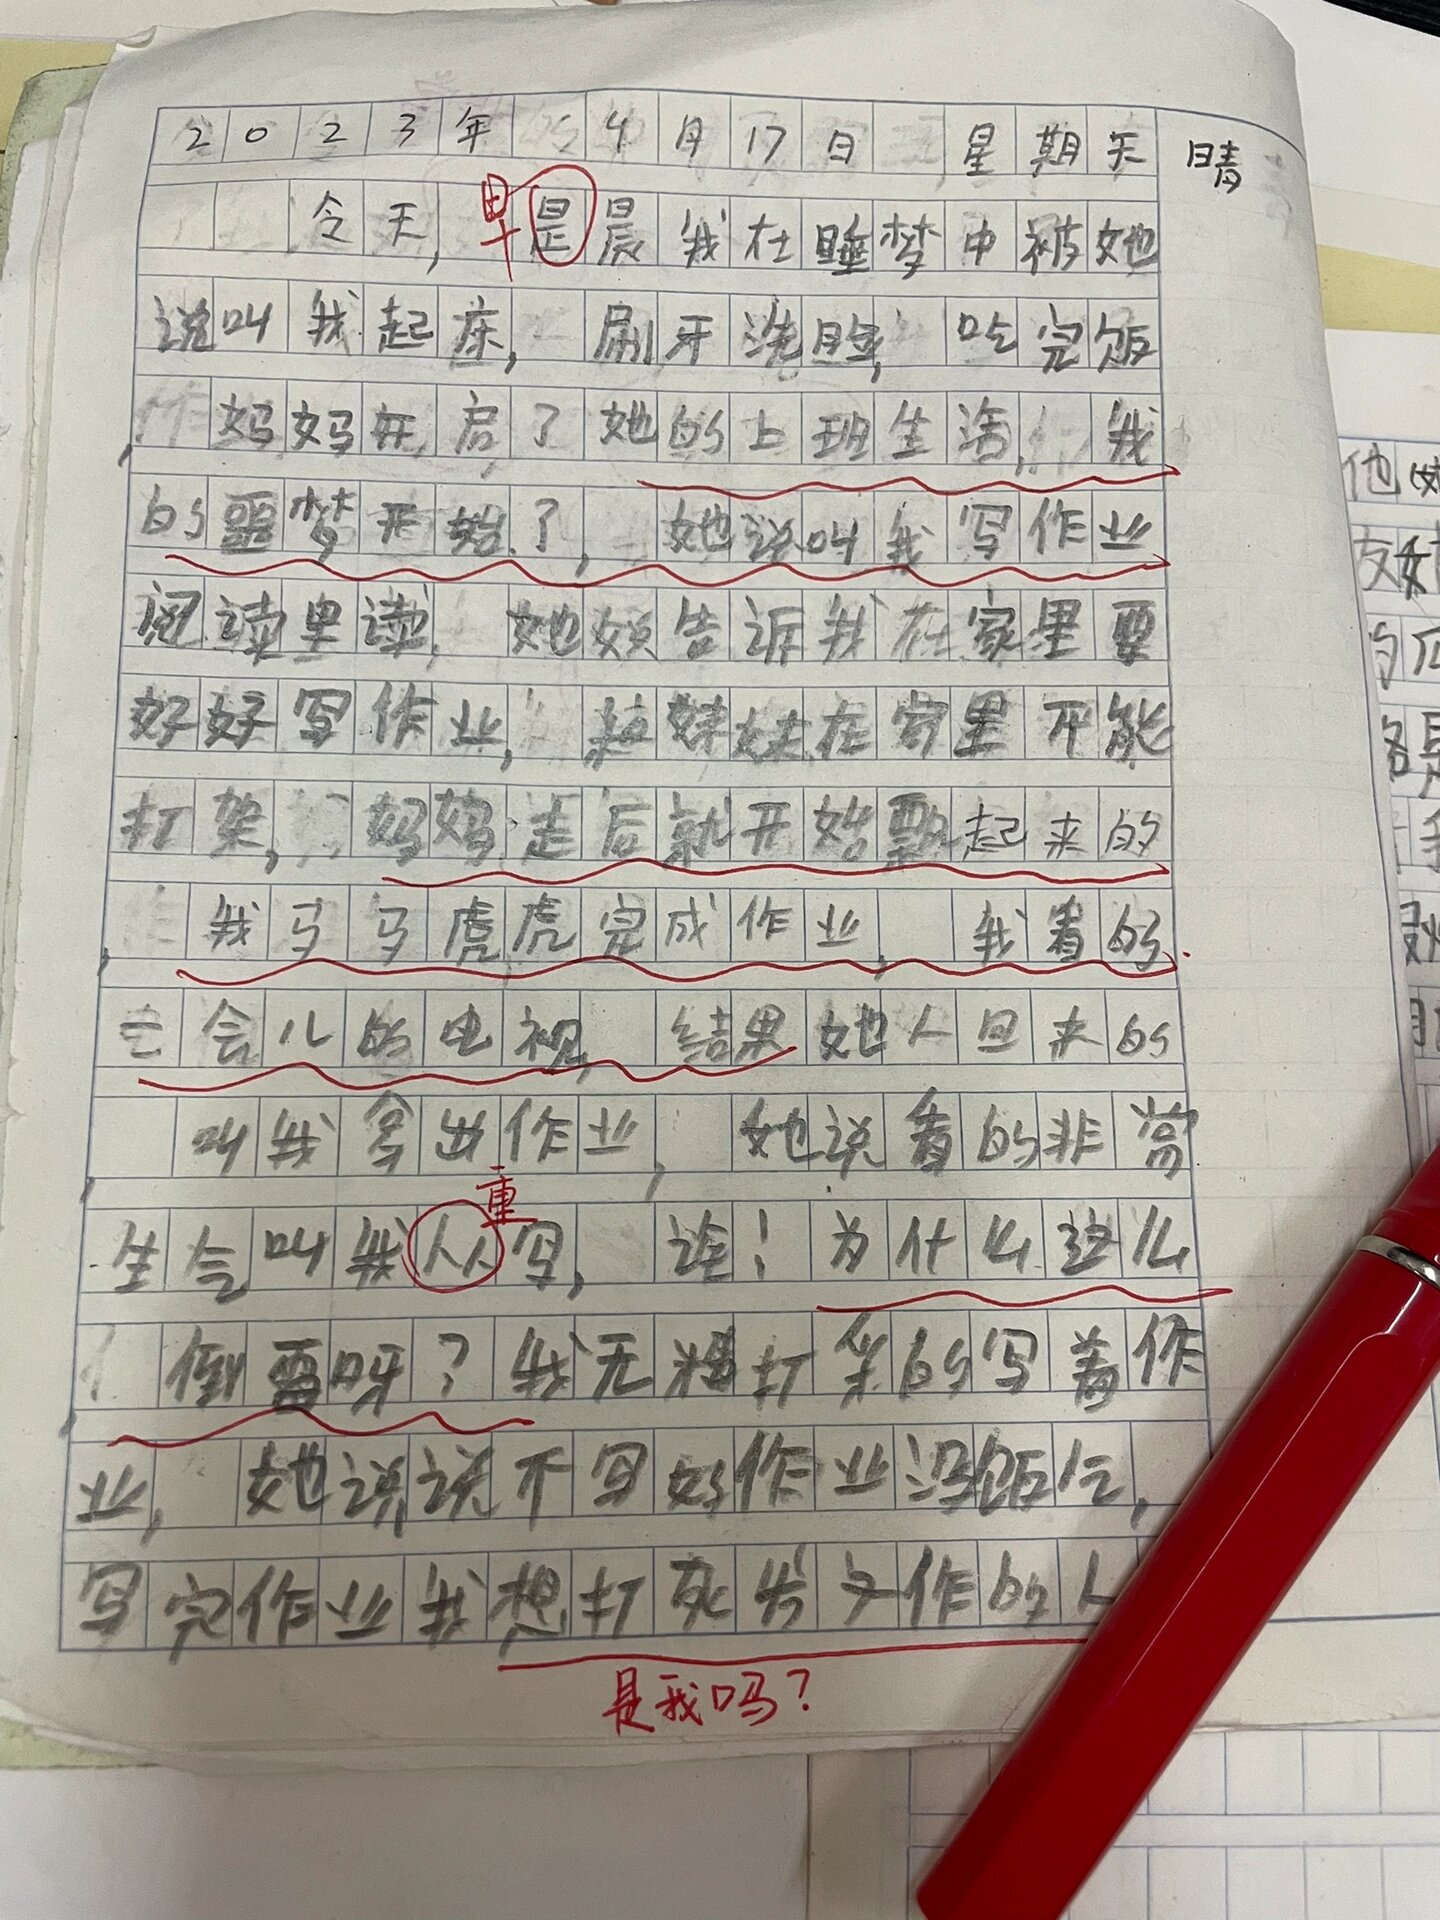 2023年 4月17日 星期天 晴
早
今天,是晨我在睡梦中被她
说叫我起床,刷牙洗脸,吃完饭
,妈妈开启了她的上班生活,我
的噩梦开始了,她说叫我写作业
阅读里读,她烦告诉我在家里要
好好写作业,妹妹在家里不能
打架,妈妈走后就开始飘起来的
,我马马虎虎完成作业,我看的
一会儿的电视,结果她人回来的
,叫我拿出作业,她说看的非常
重
生气叫我从写,说!为什么这么
倒霉呀?我无精打采的写着作
业,她说说不写好作业没饭吃,
写完作业我想打死发文作的人
是我吗?